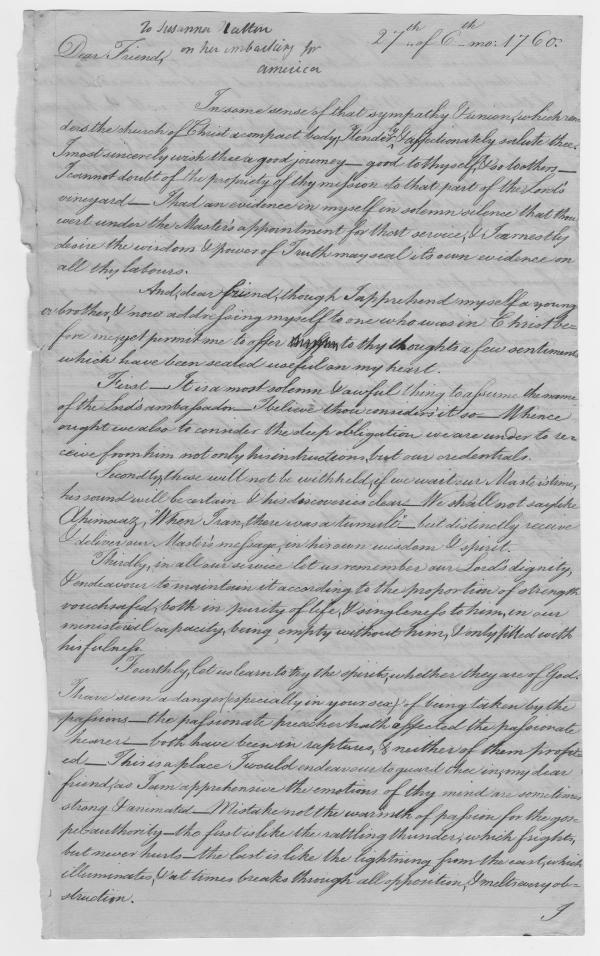 To Susanna Hatton
on her embarking for
america
27th of 6th mo: 1760.
Dear Friend,
In some sense of that sympathy & union, which ren-
ders the church of Christ a compact body, I tenderly & affectionately salute thee.
I most sincerely wish thee a good journey — good to thyself, & so to others —
I cannot doubt of the propriety of thy mission to that part of the Lord's
vineyard — I had an evidence in myself in solemn silence that thou
wert under the Master's appointment for that service, & I earnestly
desire the wisdom & power of Truth may seal its own evidence on
all thy labours.
And, dear friend, though I apprehend myself a young
brother, & now addressing myself to one who was in Christ be-
fore me, yet permit me to offer to thy thoughts a few sentiments
which have been sealed useful on my heart.
First — It is a most solemn & awful thing to assume the name
of the Lord's ambassador — I believe thou considers it so — Whence
ought we also to consider the deep obligation we are under to re-
ceive from him not only his instructions, but our credentials.
Secondly, these will not be withheld, if we wait our Master's time,
his sound will be certain & his discoveries clear — We shall not say like
Ahimaaz, "When I ran, there was a tumult" — but distinctly receive
& deliver our Master's message, in his own wisdom & spirit.
Thirdly, in all our service let us remember our Lord's dignity,
& endeavour to maintain it according to the proportion of strength
vouchsafed, both in purity of life, & singleness to him, in our
ministerial capacity, being empty without him, & only filled with
his fulness.
Fourthly, let us learn to try the spirits, whether they are of God.
I have seen a danger (especially in your sex) of being taken by the
passions — the passionate preacher hath affected the passionate
hearer — both have been in raptures, & neither of them profit-
ed — This is a place I would endeavour to guard thee in, my dear
friend, as I am apprehensive the emotions of thy mind are sometimes
strong & animated — Mistake not the warmth of passion for the gos-
pel authority — the first is like the rattling thunder, which frights,
but never hurts — the last is like the lightning from the east, which
illuminates, & at times breaks through all opposition, & melts every ob-
struction.
I